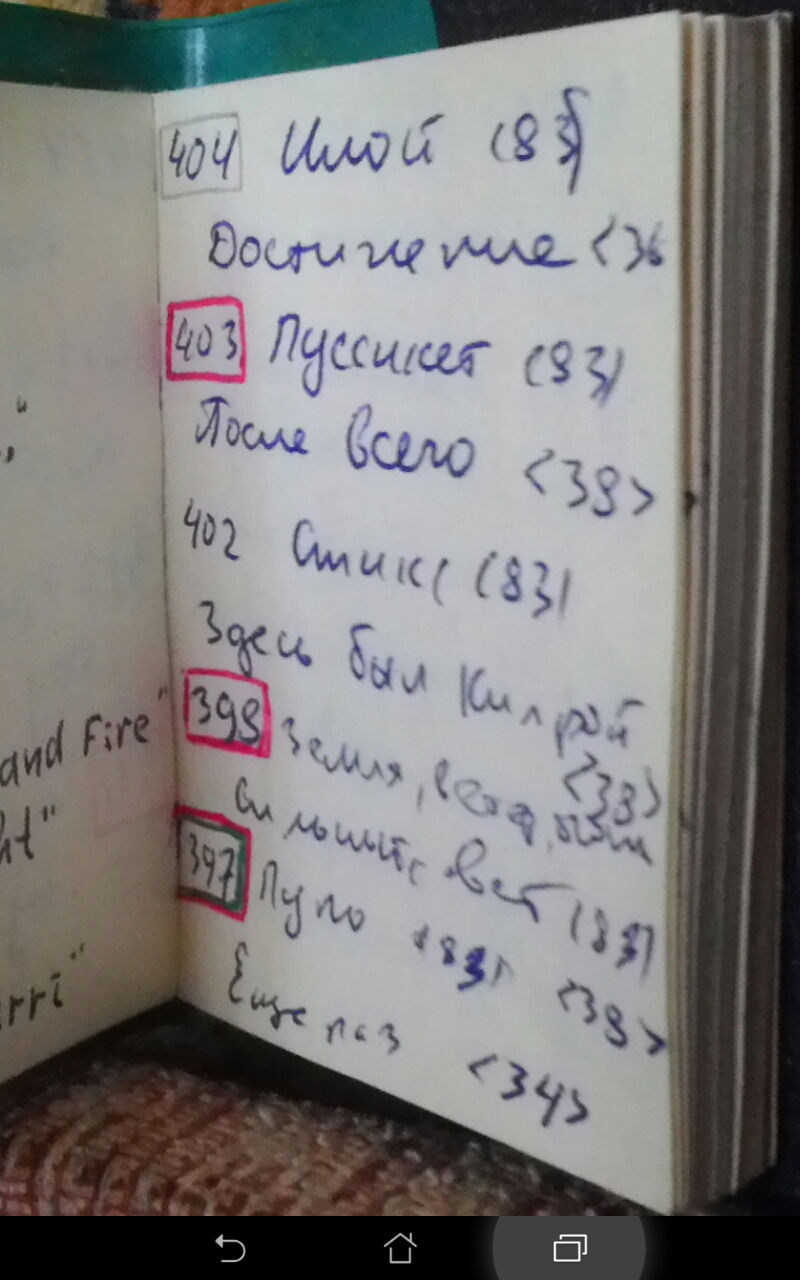 ,"
and Fire"
ht"
arri"
404 Илой (83)
Достижение <36
403 Пуссикет (83)
После всего <39>
402 Стикс (83)
Здесь был Килрой
<39>
398 Земля, ветер,
Сильный, свет (83)
397 Пуло (83) <39>
Еще раз <34>